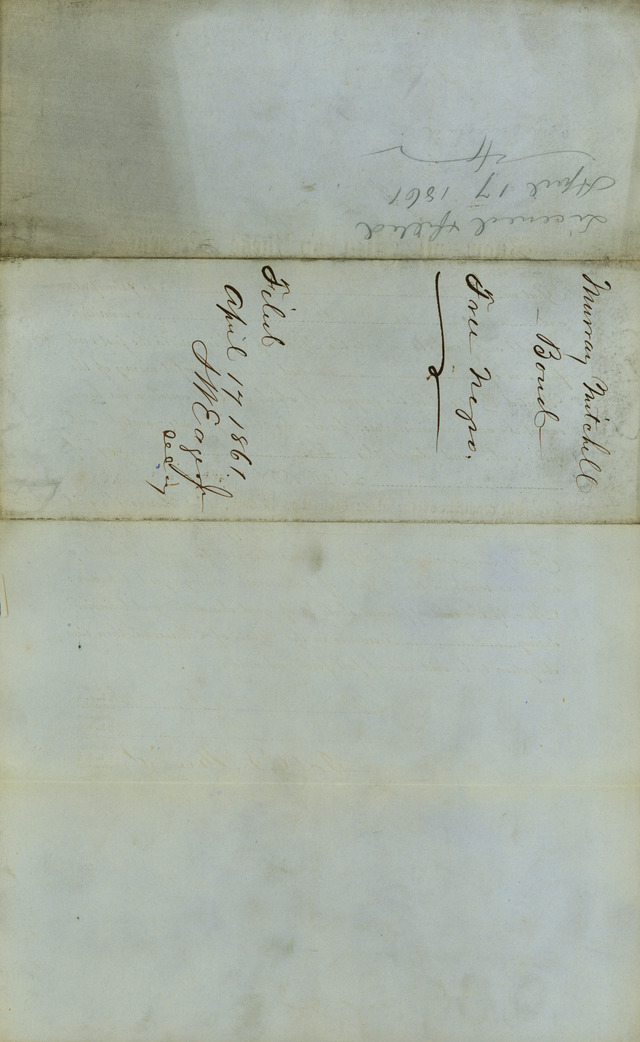 Murray Mitchell
Bond
Free Negro.
Filed
April 17 1861
Licensed & filed
April 17 1861